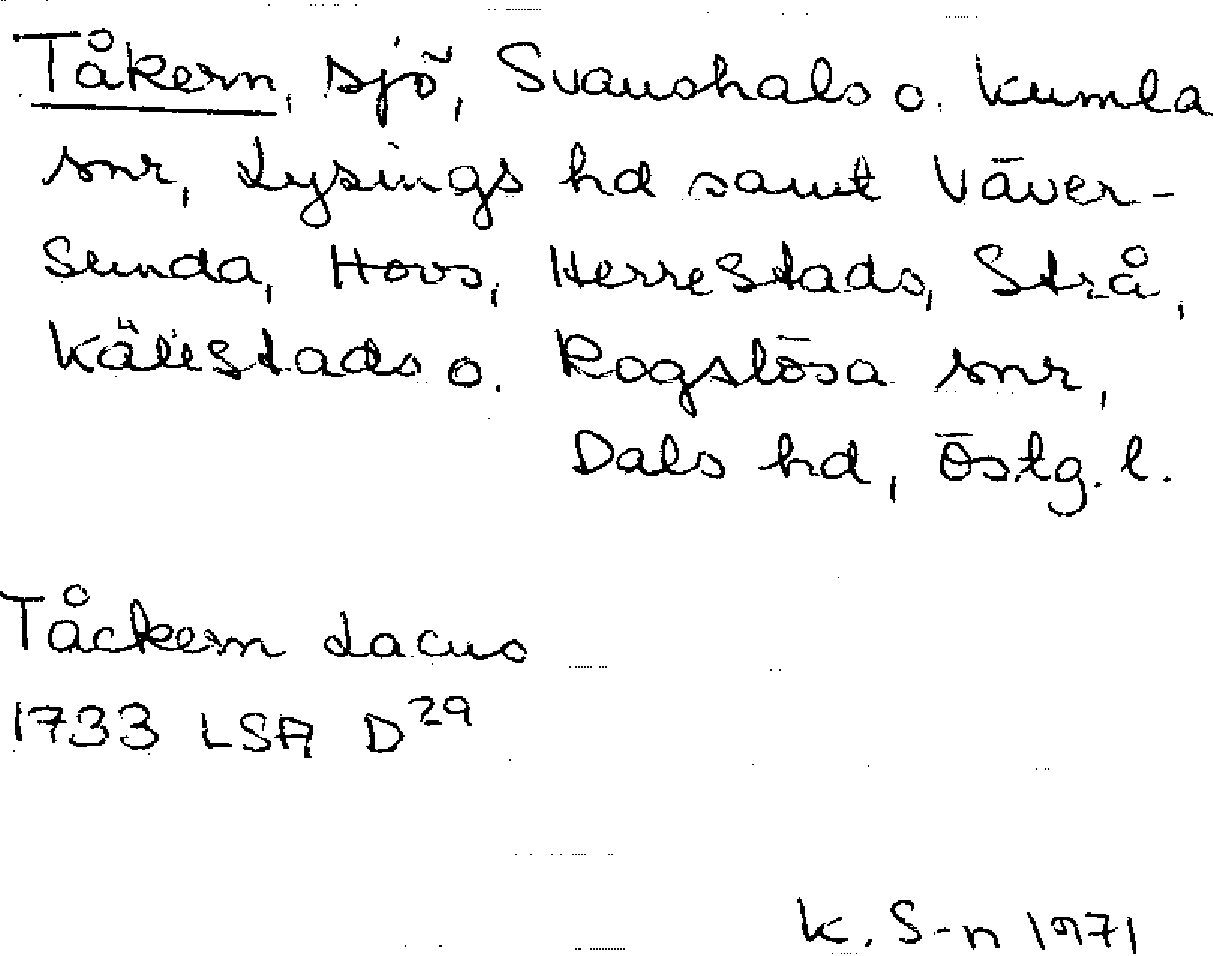 Tåkern, sjö, Svanshals o. Kumla
snr, Lysings hd samt Väver-
sunda, Hovs, Herrestads, Strå,
Källstads o. Rogslösa snr,
Dals hd, Östg. l.
Tåckern Lacus
1733 LSA D29
K. S-n 1971